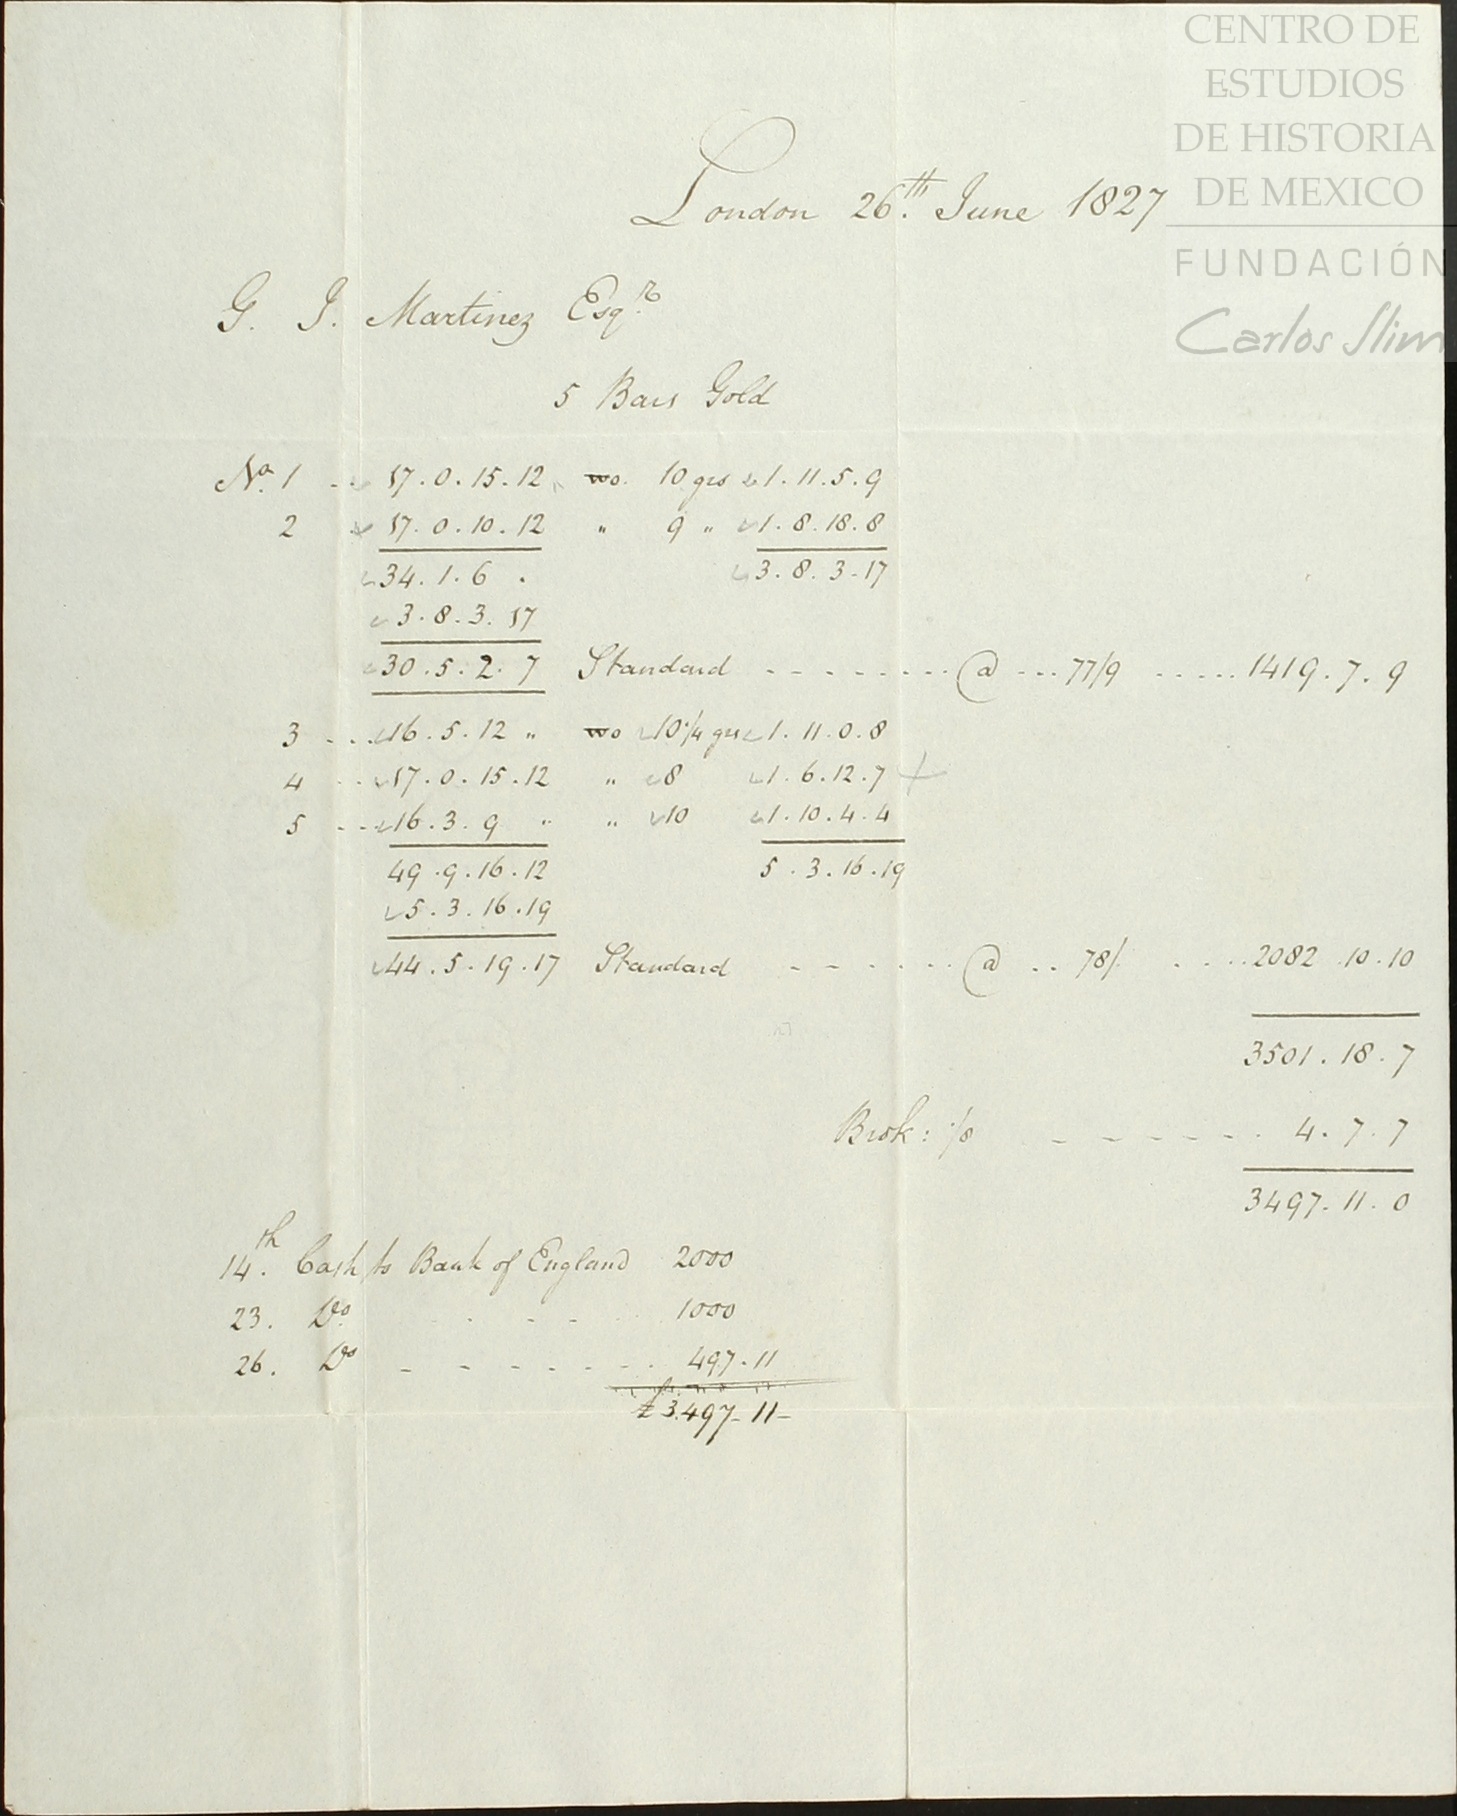 CENTRO DE
ESTUDIOS
DE HISTORIA
DE MEXICO
FUNDACIÓN
Carlos Slim
London 26th. June 1827
G. J. Martinez Esqr.
5 Bars Gold
No. 1 - - 17.0.15.12 wo. 10 grs 1.11.5.9
2 17.0.10.12 " 9 " 1.8.18.8
34.1.6 . 3.8.3.17
3.8.3.17
30.5.2.7 Standard - - - - - - - - @ --- 77/9 ----- 1419.7.9
3 - - - 16.5.12 " wo 10 1/4 grs 1.11.0.8
4 - - 17.0.15.12 " 8 1.6.12.7 +
5 - - - 16.3.9 " " 10 1.10.4.4
49.9.16.12 5.3.16.19
5.3.16.19
44.5.19.17 Standard - - - - - - @ -- 78/. - - - - 2082.10.10
3501.18.7
Brok: 1/8 - - - - - - - 4.7.7
3497.11.0
14th. Cash to Bank of England 2000
23. Do. - - - - - 1000
26. Do - - - - - - - 497.11
£3.497-11-